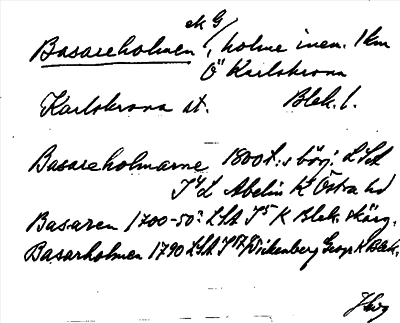 ek G/
Basareholmen /, holme inen. 1 km
Ö Karlskrona
Karlskrona st. Blek. l.
Basareholmarne 1800t.s börj: LSA
J4 L Abelin K Östra hd
Basaren 1700-50: LSA J5 K Blek. skärg.
Basarholmen 1790 LSA J17 Wikenberg Geogr K Blek.